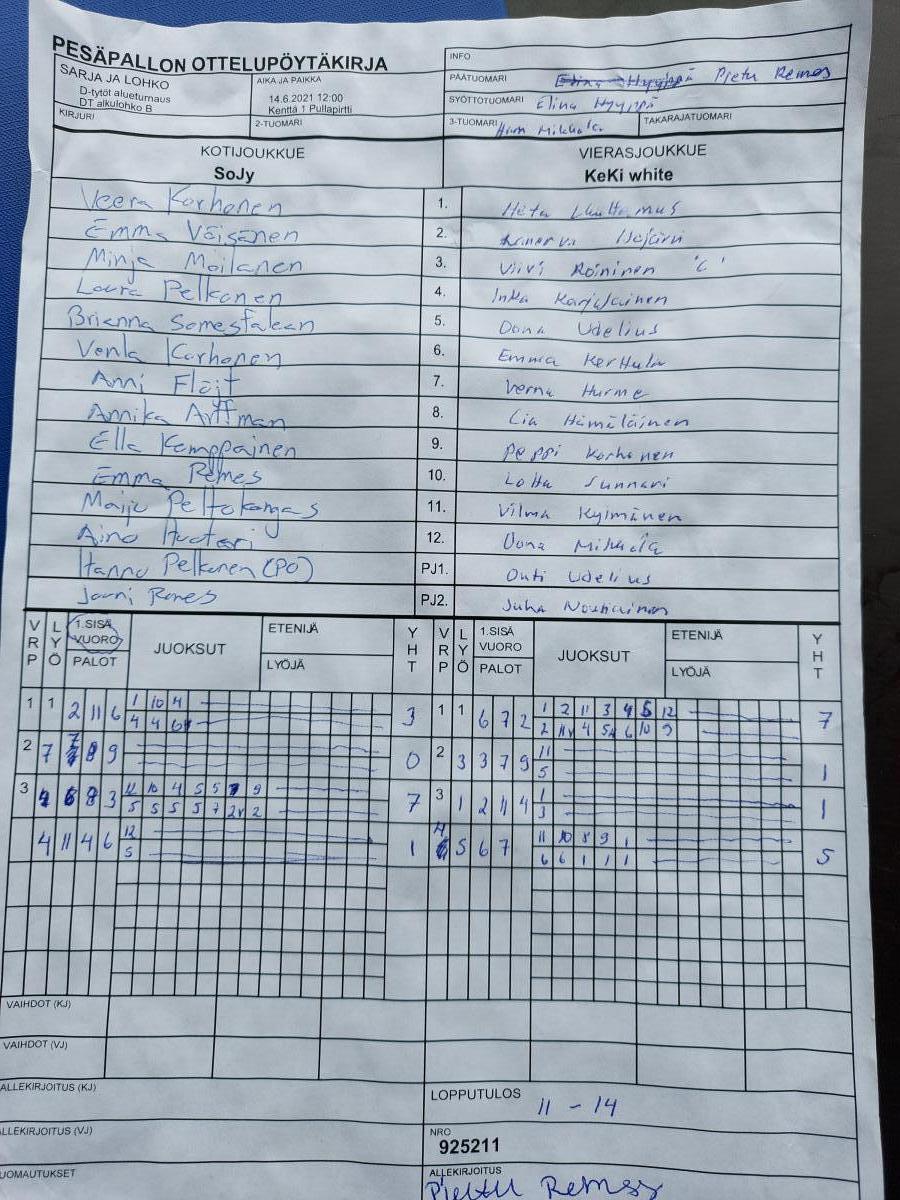 PESÄPALLON OTTELUPÖYTÄKIRJA
SARJA JA LOHKO
D-tytöt alueturnaus
DT alkulohko B
KIRJURI
AIKA JA PAIKKA
14.6.2021 12:00
Kenttä 1 Pullapirtti
2-TUOMARI
INFO
PÄÄTUOMARI Elina Hyyppä Pietu Remes
SYÖTTÖTUOMARI Elina Hyyppä
3-TUOMARI TAKARAJATUOMARI
KOTIJOUKKUE VIERASJOUKKUE
SoJy KeKi white
Veera Korhonen 1. Heta
Emma Väisänen 2. Minerva
Minja Moilanen 3. Viivi Roininen 'C'
Laura Pelkonen 4. Inka Karjalainen
Brianna 5. Oona Udelius
Venla Korhonen 6. Emma Kerttula
Anni Flöjt 7. Verna Hurme
Annika Arffman 8. Lia Hämäläinen
Ella Kemppainen 9. Peppi Korhonen
Emma Remes 10. Lotta Sunnari
Maiju Peltokangas 11. Vilma Kylmänen
Aino Huotari 12. Oona Mikkola
Hannu Pelkonen (PO) PJ1. Outi Udelius
Jouni Remes PJ2. Juha Noutiainen
VRP LYÖ 1.SISÄ VUORO PALOT JUOKSUT ETENIJÄ LYÖJÄ YHT VRP LYÖ 1.SISÄ VUORO PALOT JUOKSUT ETENIJÄ LYÖJÄ YHT
1 1 2 11 6 1 10 4 3 1 1 6 7 2 1 2 11 3 4 5 12 7
4 4 6 2 11 4 5 6 10 9
2 7 7 8 9 0 2 3 3 7 9 11 1
5
3 8 3 12 10 4 5 5 9 7 3 1 2 11 4 1 1
5 5 5 5 7 2 2 3
4 11 4 6 12 1 4 5 6 7 11 10 8 9 1 5
5 6 6 1 1 1
VAIHDOT (KJ)
VAIHDOT (VJ)
ALLEKIRJOITUS (KJ)
LOPPUTULOS 11 - 14
ALLEKIRJOITUS (VJ)
NRO
925211
HUOMAUTUKSET
ALLEKIRJOITUS
Pietu Remes